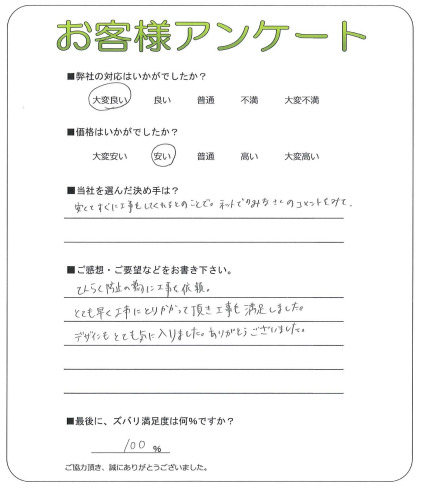 お客様アンケート
■弊社の対応はいかがでしたか？
大変良い 良い 普通 不満 大変不満
■価格はいかがでしたか？
大変安い 安い 普通 高い 大変高い
■当社を選んだ決め手は？
安くてすぐに工事もしてくれるとのことで。ネットでのみなさんのコメントをみて。
■ご感想・ご要望などをお書き下さい。
てんらく防止の為に工事を依頼。
とても早く工事にとりかかって頂き工事も満足しました。
デザインもとても気に入りました。ありがとうございました。
■最後に、ズバリ満足度は何%ですか？
100 %
ご協力頂き、誠にありがとうございました。